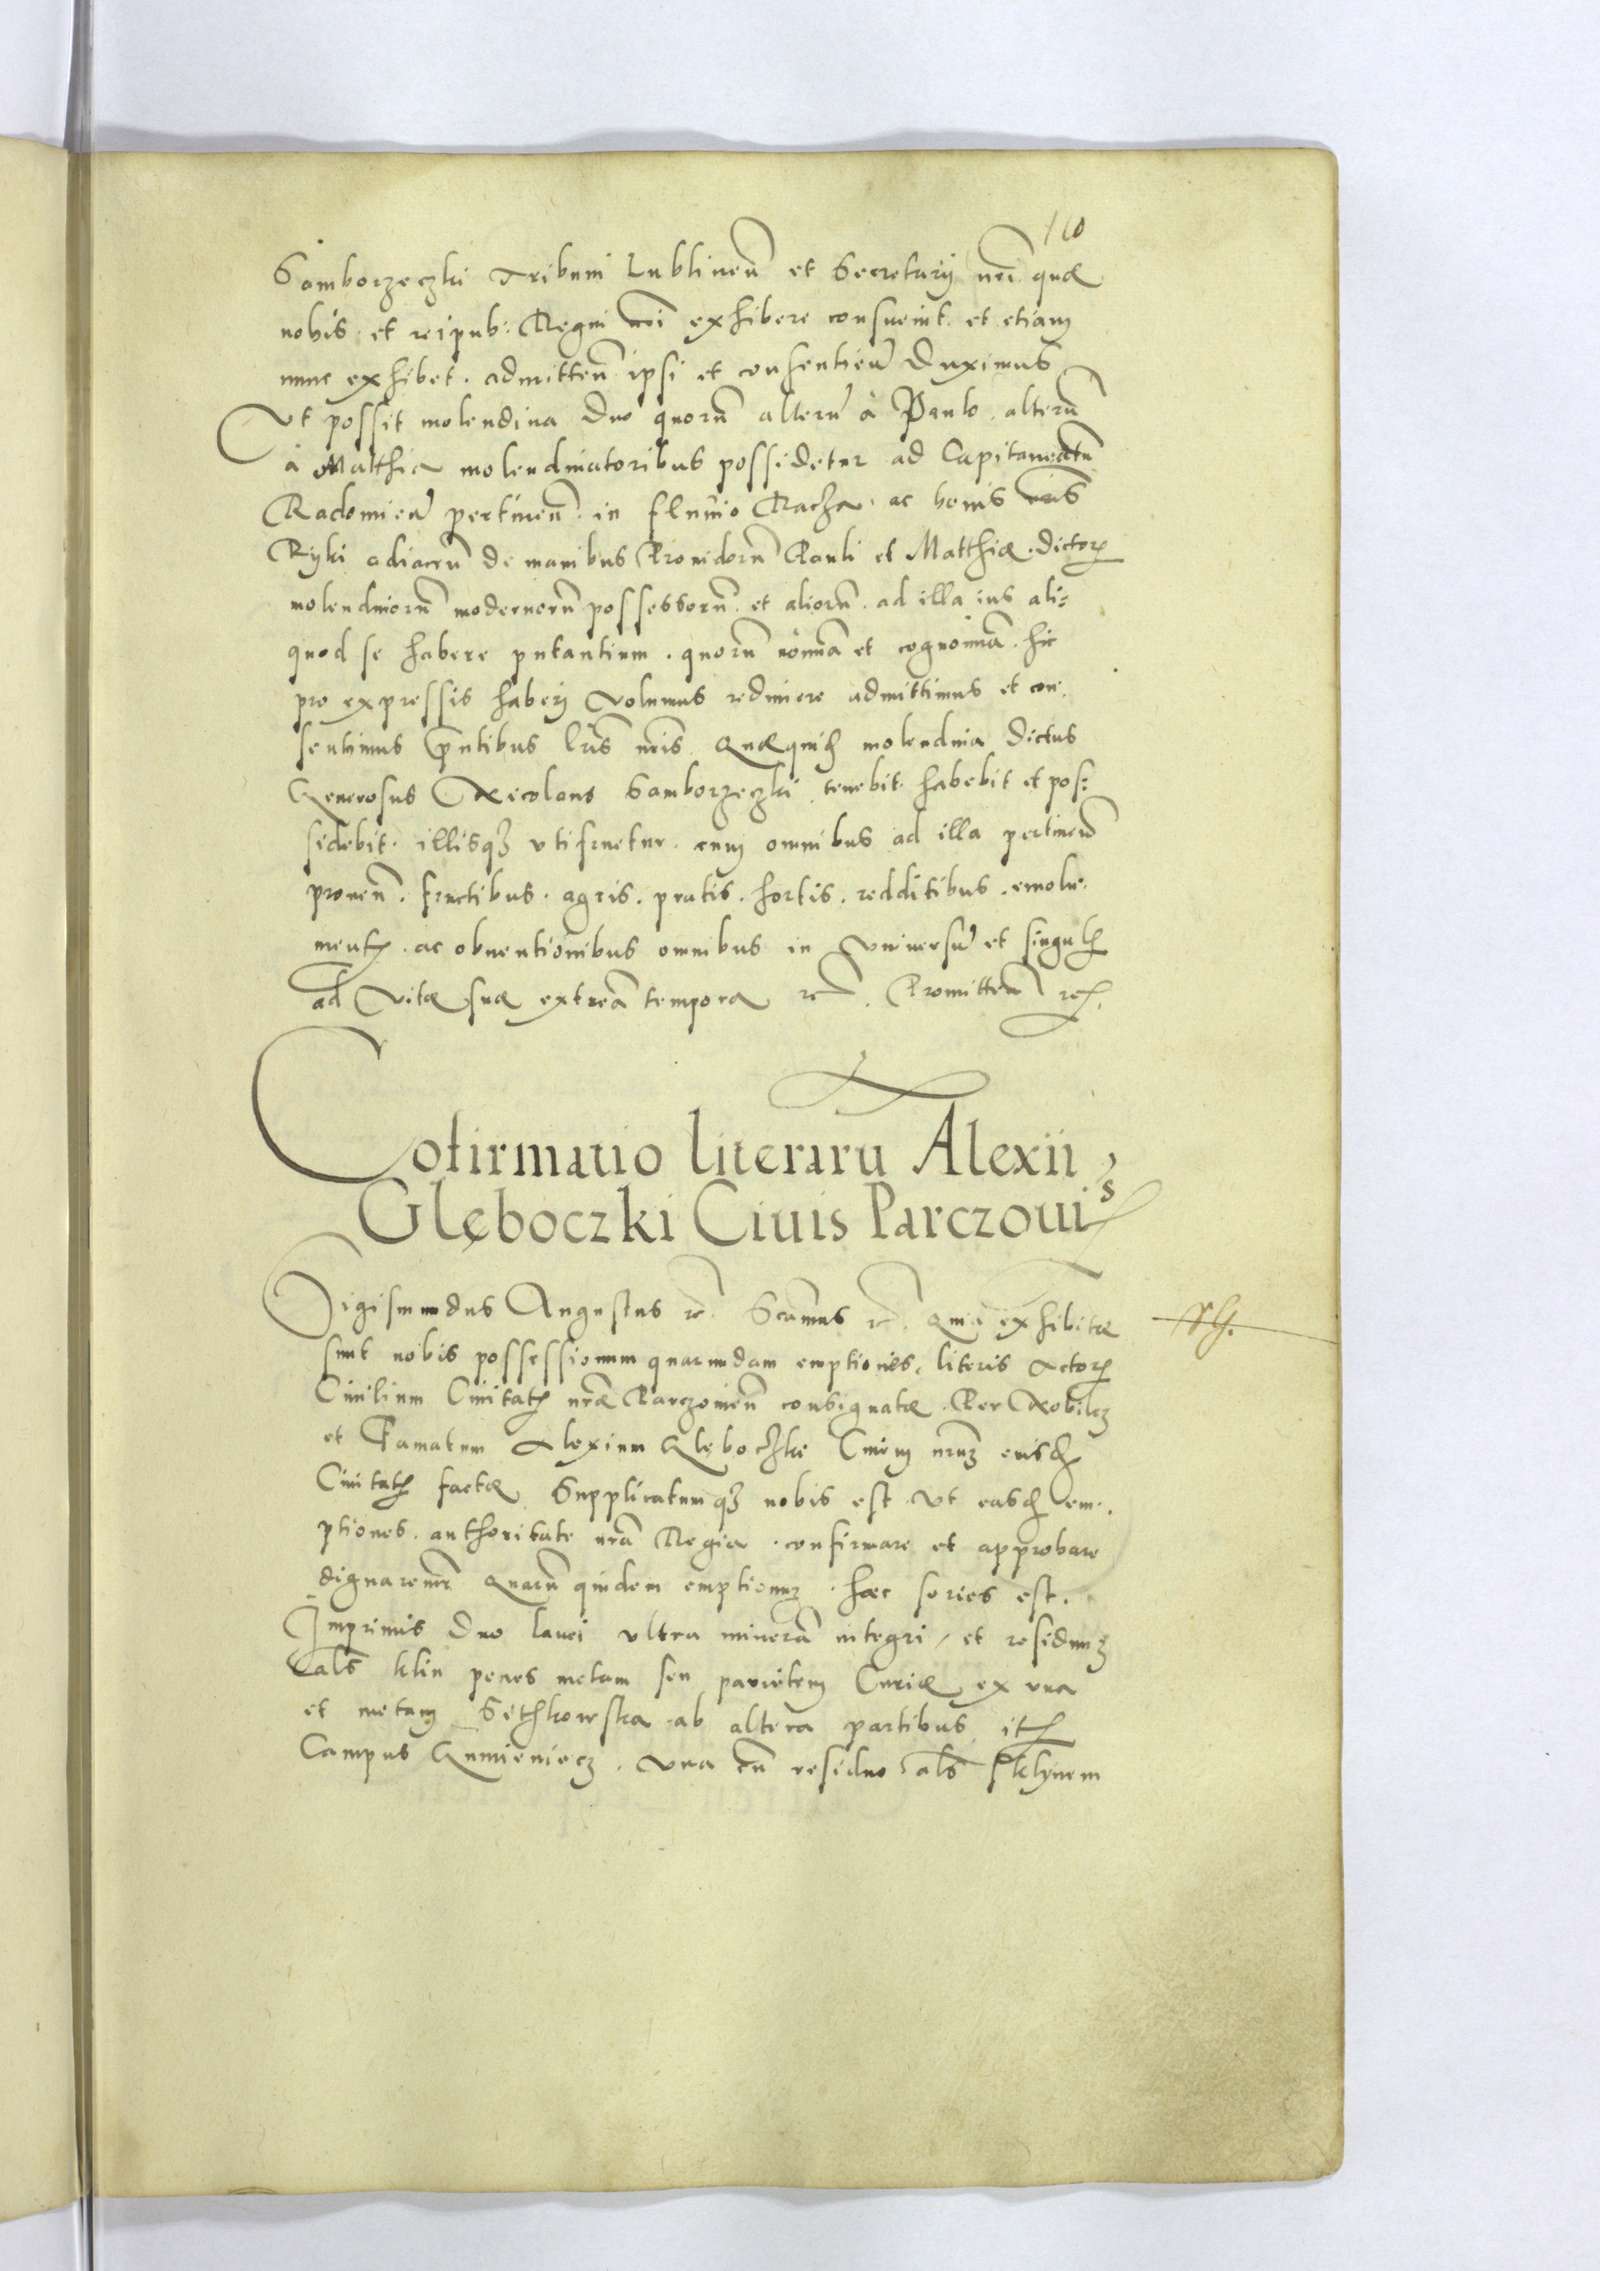 110
Samborzeczki Tribuni Lublineñ et Secretarij nri quæ
nobis et reipub: Regni nri exhibere consueuit et etiam
nunc exhibet. admitteñ ipsi et consentieñ Duximus
Vt possit molendina duo quorũ alterũ à Paulo. alterũ
à Matthia molendinatoribus possidetur ad Capitaneatũ
Radomieñ pertineñ. in fluuio Racza. ac bonis nris
Ryki adiaceñ de manibus Prouidorũ Pauli et Matthiæ. dictor
molendinorũ modernorũ possessorũ. et aliorũ. ad illa ius ali:
quod se habere putantium. quorũ nõina et cognoina. hic
pro expressis haberi Volumus redimere admittimus et con.
sentimus pñtibus lris nris. Quæquid molendina dictus
Generosus Nicolaus Samborzeczki tenebit. habebit et pos:
sidebit. illisq3 vtifruetur. cum omnibus ad illa pertineñ
proueñ. fructibus. agris. pratis. hortis. redditibus. emolu.
ment. ac obuentionibus omnibus in Vniuersũ et singul
ad Vitæ suæ extrea tempora rc. Promitteñ rc.
Cofirmatio literaru Alexii
Glęboczki Ciuis Parczouis
Sigismundus Augustus rc. Scamus rc. Quia exhibitæ
sunt nobis possessionum quarundam emptiones. literis Actor
Ciuilium Ciuitat nræ Parczouieñ consignatæ. Per Nobilem
et Famatum Alexium Glęboczki Ciuem nrum eiusd
Ciuitat factæ Supplicatumq3 nobis est Vt easd em.
ptiones. authoritate nra Regia. confirmare et approbare
dignaremr Quarũ quidem emptionum. hæc series est.
Imprimis duo lanei vltra minera integri / et residuum
als klin penes metam seu parietem Curiæ ex vna
et metam Sethkowska ab altera partibus. it
Campus Gumieniecz. Vna cũ residuo als sklynem